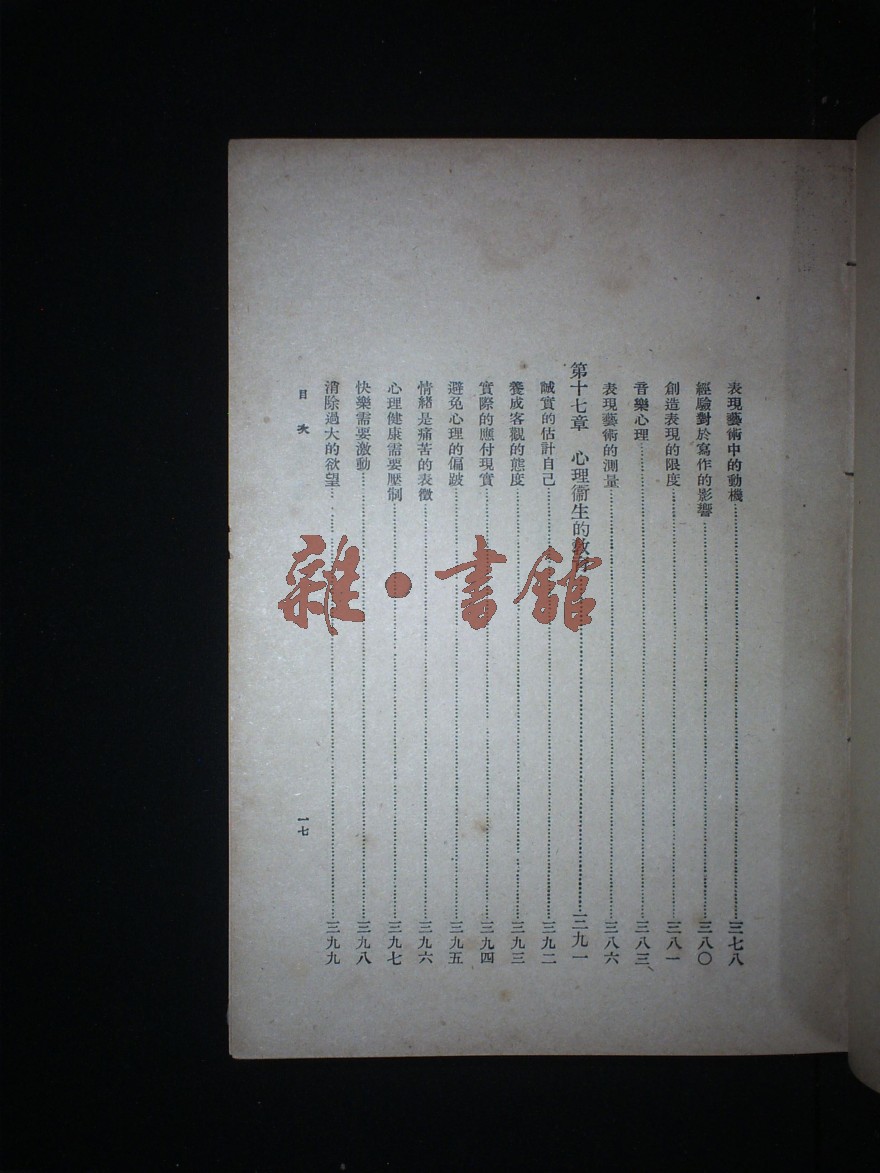 表現藝術中的動機……三七八
經驗對於寫作的影響……三八〇
創造表現的限度……三八一
音樂心理……三八三
表現藝術的測量……三八六
第十七章　心理衞生的教育……三九一
誠實的估計自己……三九二
養成客觀的態度……三九三
實際的應付現實……三九四
避免心理的偏跛……三九五
情緒是痛苦的表徵……三九六
心理健康需要壓制……三九七
快樂需要激動……三九八
消除過大的欲望……三九九
目次
一七
雜·書館